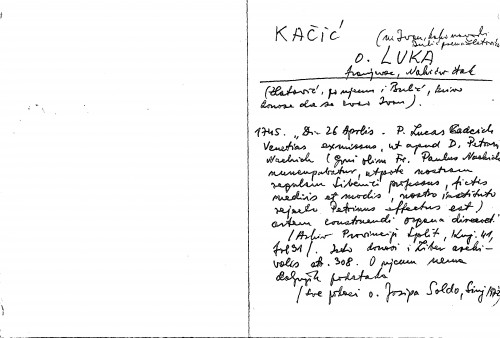 KAČIĆ
(ne Ivan, kako navodi
Bulić prema Zlatoviću
o. LUKA
franjevac,
(Zlatović, po njemu i Bulić, krivo
donose da se zvao Ivan).
1745. "Die 26 Aprilis - P. Lucas Cadcich
Venetias exmissus, ut apud D. Petrum
Nachich (qui olim Fr. Paulus Nachich
nuncupabatur, utpote nostram
regulam Sibenici professus, fictis
mediis et modis, nostro instituto
rejecto Petrinus effectus est)
artem construendi organa discat"
/Arhiv Provincije Split, Knj. 41,
fol 31/. Isto donosi i Liber archi-
valis str. 308. O njemu nema
daljnjih podataka
/sve podaci o. Josipa Soldo, Sinj